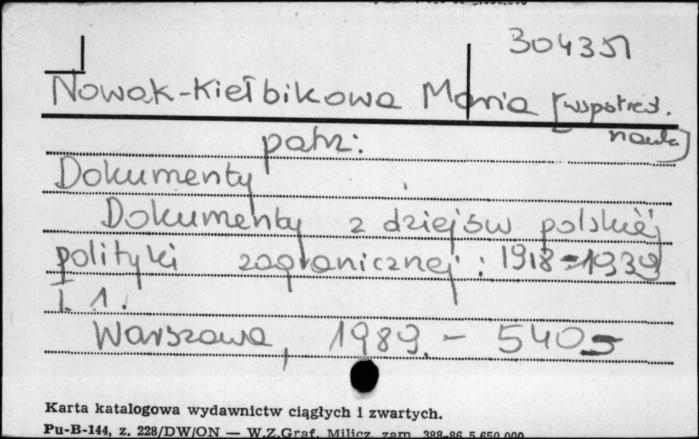 304351
Nowak-Kiełbikowa Maria [współred.
nauk.]
patrz:
Dokumenty
Dokumenty z dziejów polskiej
polityki zagranicznej : 1918-1939
T. 1.
Warszawa, 1989. - 540 s
Karta katalogowa wydawnictw ciągłych i zwartych.
Pu-B-144, z. 228/DW/ON — W.Z.Graf. Milicz, zam. 388-86 5.650.000